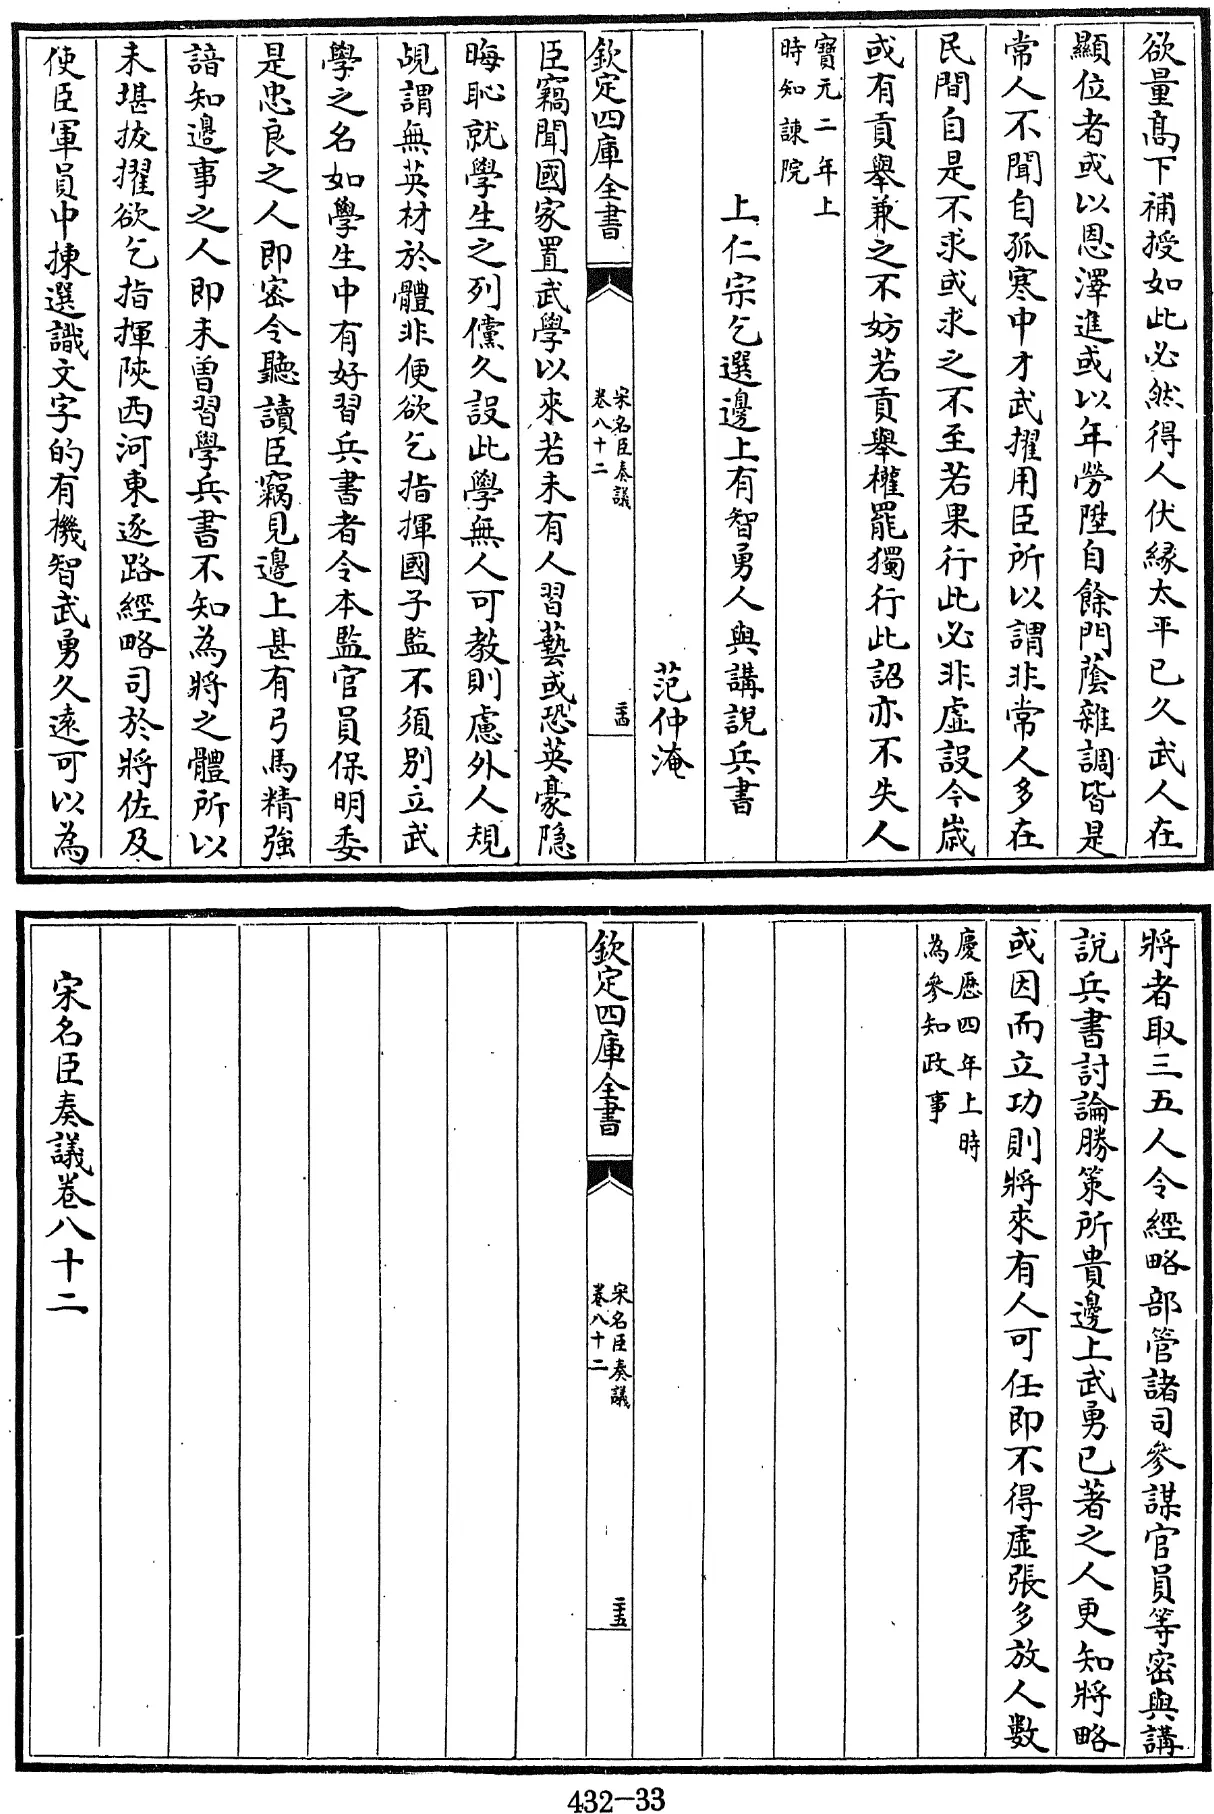 欲量髙下補授如此必然得人伏縁太平已久武人在
顯位者或以恩澤進或以年勞陞自餘門蔭雜調皆是
常人不聞自孤寒中才武擢用臣所以謂非常人多在
民間自是不求或求之不至若果行此必非虚設今嵗
或有貢舉兼之不妨若貢舉權罷獨行此詔亦不失人
寶元二年上
時知諫院
上仁宗乞選邊上有智勇人與講說兵書
范仲淹
欽定四庫全書
宋名臣奏議
卷八十二
二十四
臣竊聞國家置武學以來若未有人習藝或恐英豪隠
晦恥就學生之列儻久設此學無人可教則慮外人規
覘謂無英材於體非便欲乞指揮國子監不須别立武
學之名如學生中有好習兵書者令本監官員保明委
是忠良之人即密令聽讀臣竊見邊上甚有弓馬精強
諳知邊事之人即未曽習學兵書不知為將之體所以
未堪拔擢欲乞指揮陜西河東逐路經略司於將佐及
使臣軍員中揀選識文字的有機智武勇久遠可以為
將者取三五人令經略部管諸司參謀官員等密與講
說兵書討論勝策所貴邊上武勇已著之人更知將略
或因而立功則將來有人可任即不得虚張多放人數
慶歴四年上時
為參知政事
欽定四庫全書
宋名臣奏議
卷八十二
二十五
宋名臣奏議卷八十二
432-33